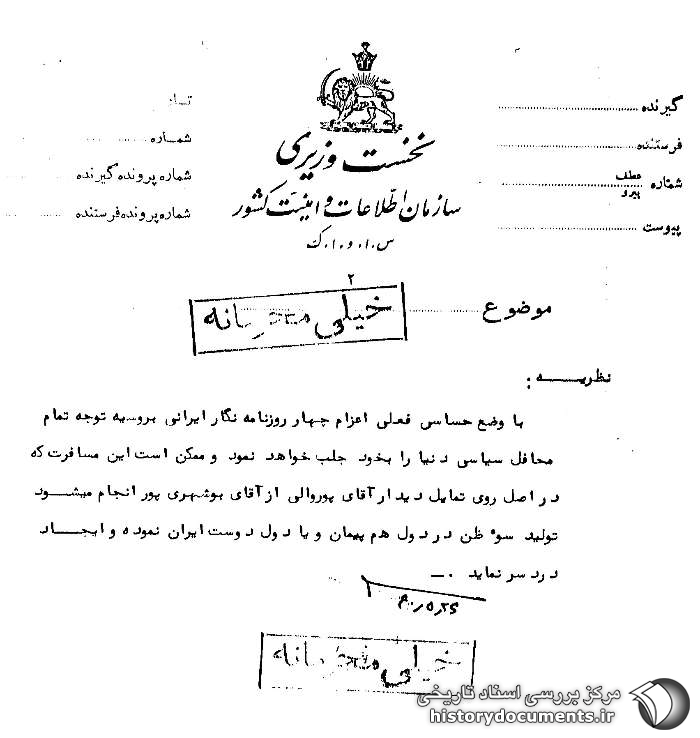 نخست وزیری
سازمان اطلاعات و امنیت کشور
س.ا.و.ا.ک
گیرنده
فرستنده
شماره عطف
پیرو
پیوست
شماره
شماره پرونده گیرنده
شماره پرونده فرستنده
۲
موضوع
خیلی محرمانه
نظریـــــه :
با وضع حساسی فعلی اعزام چهار روزنامه نگار ایرانی بروسیه توجه تمام
محافل سیاسی دنیا را بخود جلب خواهد نمود و ممکن است این مسافرت که
در اصل روی تمایل دیدار آقای پوروالی از آقای بوشهری پور انجام میشود
تولید سوء ظن در دول هم پیمان و یا دول دوست ایران نموده و ایجاد
درد سر نماید .ــ
خیلی محرمانه
مرکز بررسی اسناد تاریخی
historydocuments.ir